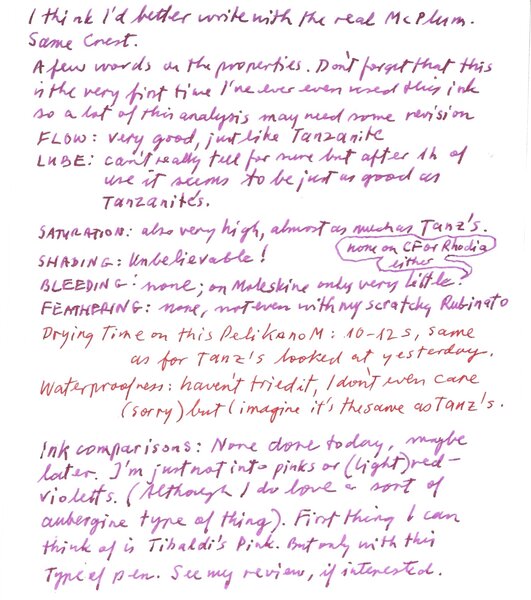 I think I'd better write with the real McPlum.
Same Crest.
A few words on the properties. Don't forget that this
is the very first time I've ever even used this ink
so a lot of this analysis may need some revision
FLOW: very good, just like Tanzanite
LUBE: can't really tell for sure but after 1h of
use it seems to be just as good as
Tanzanite's.
SATURATION: also very high, almost as much as Tanz's.
SHADING: Unbelievable!
none on CF or Rhodia
either
BLEEDING: none; on Moleskine only very little.
FEATHERING: none, not even with my scratchy Rubinato
Drying Time on this Pelikano M: 10-12s, same
as for Tanz's looked at yesterday.
Waterproofness: haven't tried it, I don't even care
(sorry) but I imagine it's the same as Tanz's.
Ink comparisons: None done today, maybe
later. I'm just not into pinks or (light) red-
violetts. (Although I do love a sort of
aubergine type of thing). First thing I can
think of is Tibaldi's Pink. But only with this
Type of pen. See my review, if interested.